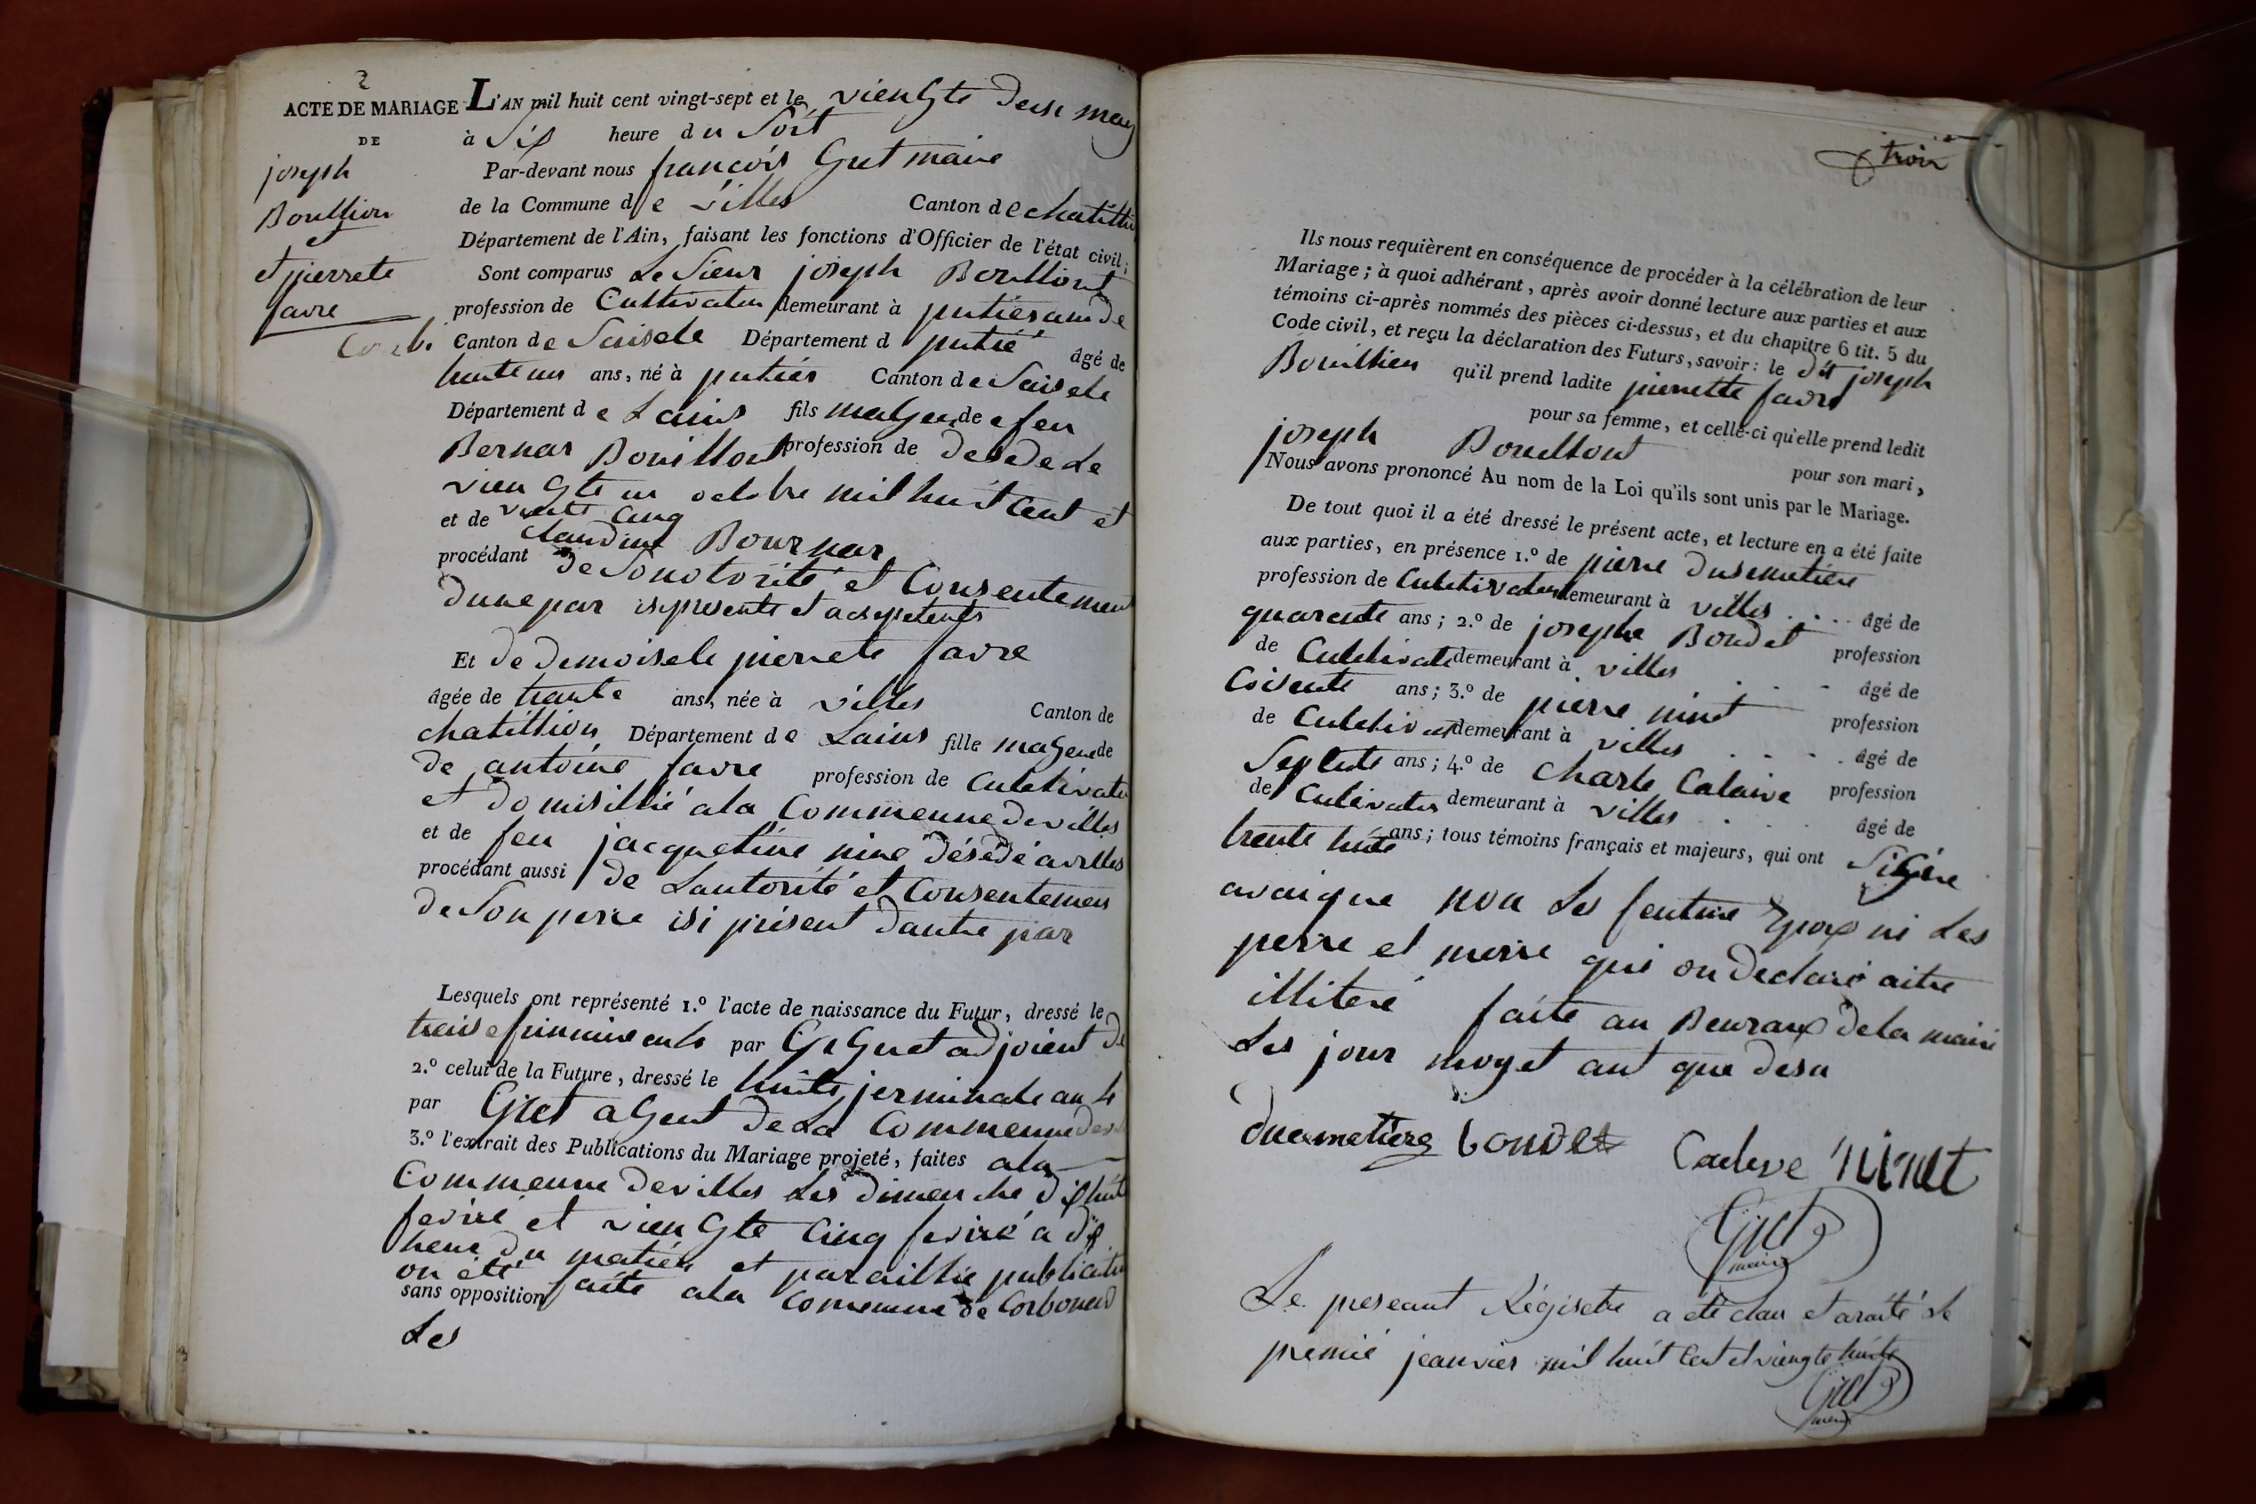 2
ACTE DE MARIAGE
DE
joseph
Boullion
et
et pierrete
favre
L'AN mil huit cent vingt-sept et le viengte deux may
à Six heure du Soit
Par-devant nous francois Gret maire
de la Commune de villes Canton de chatillion
Département de l'Ain, faisant les fonctions d'Officier de l'état civil;
Sont comparus Le Sieur joseph Boulliont
profession de Cultivateur demeurant à
Canton de Seisele Département d âgé de
trente un ans, né à Canton de Seisele
Département de Lains fils majeur de feu
Bernar Bouilliont profession de desede Le
viengte un octobre mil huit Cent et
vientte Cinq
et de claudine Bournar
procédant de So notorité et Consentement
dune par isy presente et acseptente
Et de demoisele pierrete favre
âgée de trante ans, née à villes Canton de
chatillion Département de Lains fille majeure de
de antoine favre profession de Culetivateur
et domisillié ala Commeune de villes
et de feu jacqueline nine désédé avilles
procédant aussi de Lautorité et Consentemen
de Son perre isi présent dautre par
Lesquels ont représenté 1.° l'acte de naissance du Futur, dressé le
treise frimaire an 4 par adjoient de
2.° celui de la Future, dressé le huite jerminale an 4
par Gret agent de La Commeune de
3.° l'extrait des Publications du Mariage projeté, faites ala
Commeune de villes Les dimenche dixhuit
fevrié et viengte Cinq fevrié a dix
heure du matien et paraillie publication
on été faite ala Comeune de Corbonod
sans opposition
Les
trois
Ils nous requièrent en conséquence de procéder à la célébration de leur
Mariage; à quoi adhérant, après avoir donné lecture aux parties et aux
témoins ci-après nommés des pièces ci-dessus, et du chapitre 6 tit. 5 du
Code civil, et reçu la déclaration des Futurs, savoir: le dit joseph
Bouillion qu'il prend ladite pierrette favre
pour sa femme, et celle-ci qu'elle prend ledit
joseph Bouilliont pour son mari,
Nous avons prononcé Au nom de la Loi qu'ils sont unis par le Mariage.
De tout quoi il a été dressé le présent acte, et lecture en a été faite
aux parties, en présence 1.° de pierre dusemetiere
profession de Culetivateur demeurant à villes .... âgé de
quarente ans; 2.° de josephe Boudet profession
de Culetivate demeurant à villes âgé de
Coisente ans; 3.° de pierre ninet profession
de Culetivat demeurant à villes âgé de
Septente ans; 4.° de Charle Calaive profession
de Culivateur demeurant à villes âgé de
trente huite ans; tous témoins français et majeurs, qui ont Signe
avaique nou Les feuture Epox ni Les
perre et merre qui on declaré aitre
illiteré faite au Beuraux de la mairie
Les jour moyet ant que desu
duemetiere bondet Caleve ninet
Gret
maire
Le preseant Régisetre a été clau et araité Le
premié jeanvier mil huit Cent et viengte huite
Gret
maire